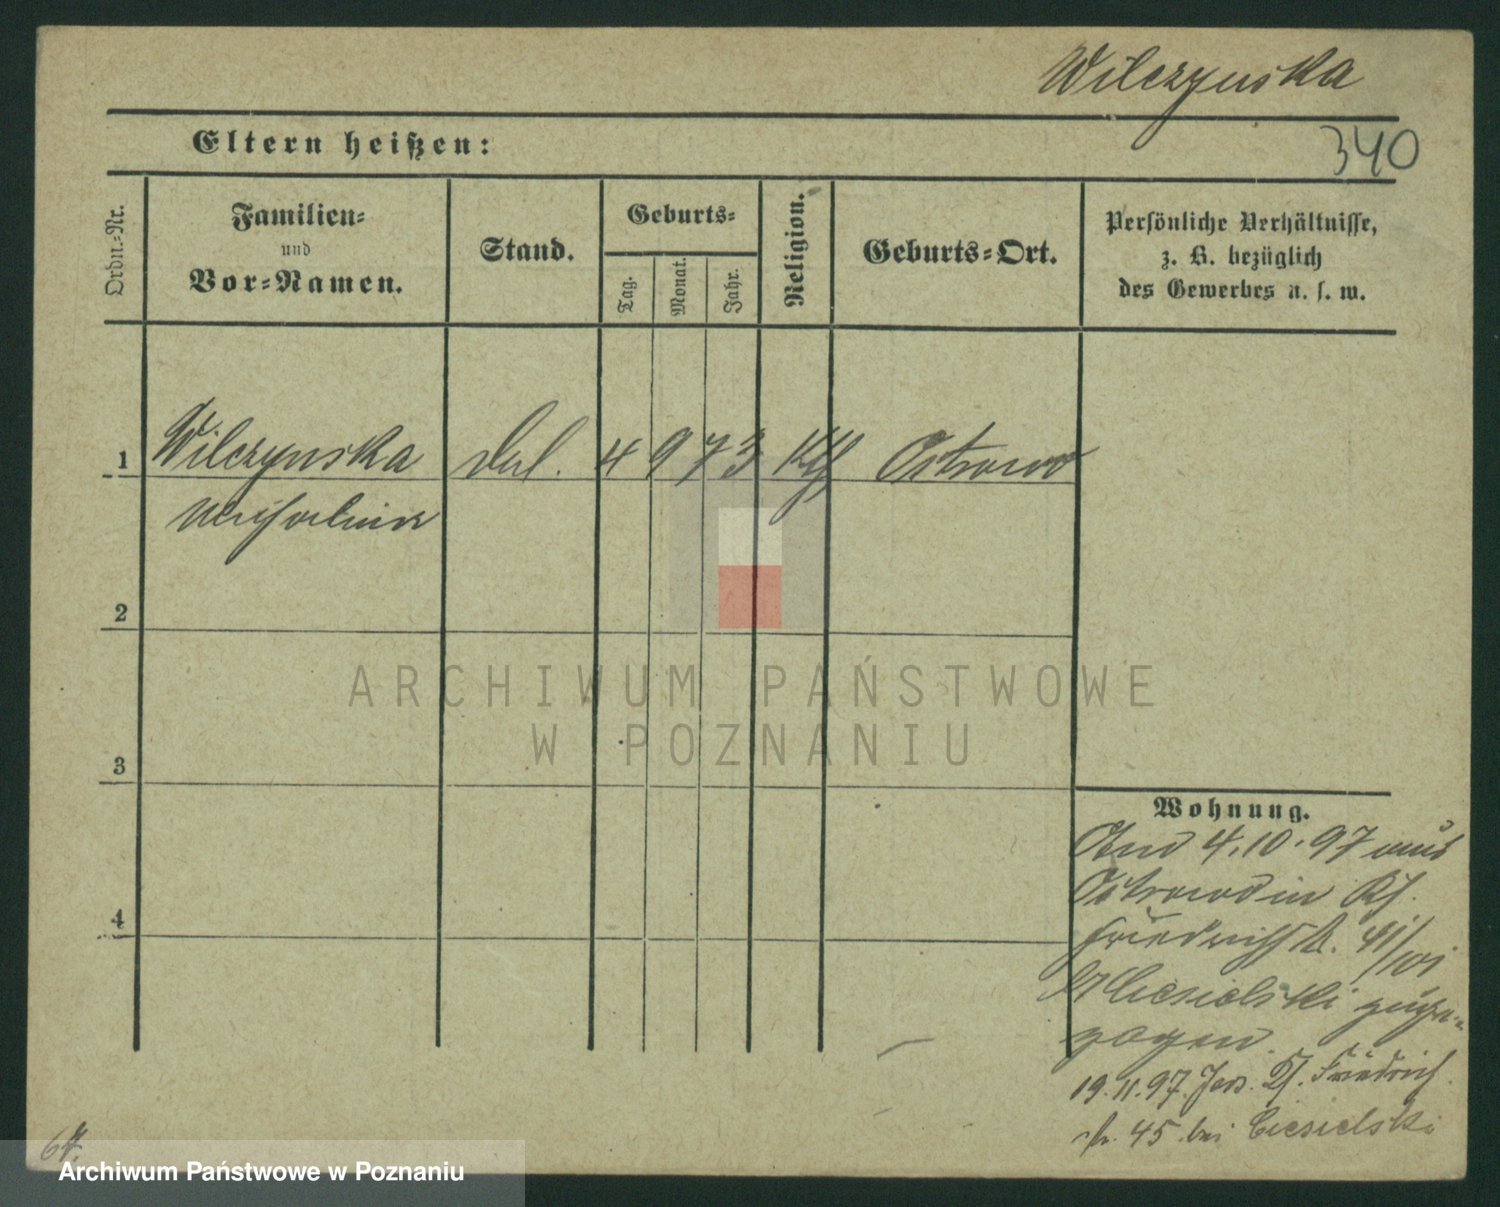 Wilczynska
340
Eltern heißen:
Ordn.-Nr.
Familien-
und
Vor-Namen.
Stand.
Geburts-
Tag.
Monat.
Jahr.
Religion.
Geburts-Ort.
Persönliche Verhältnisse,
z. B. bezüglich
des Gewerbes u. s. w.
1 Wilczynska 4 9 73 Kth Ostrowo
2
3
4
Wohnung.
4.10.97 aus
Ostrowo in
Friedrichstr.
Ciesielski zuge-
zogen.
19.11.97. Friedrich
str. 45 bei Ciesielski
ARCHIWUM PAŃSTWOWE
W POZNANIU
Archiwum Państwowe w Poznaniu